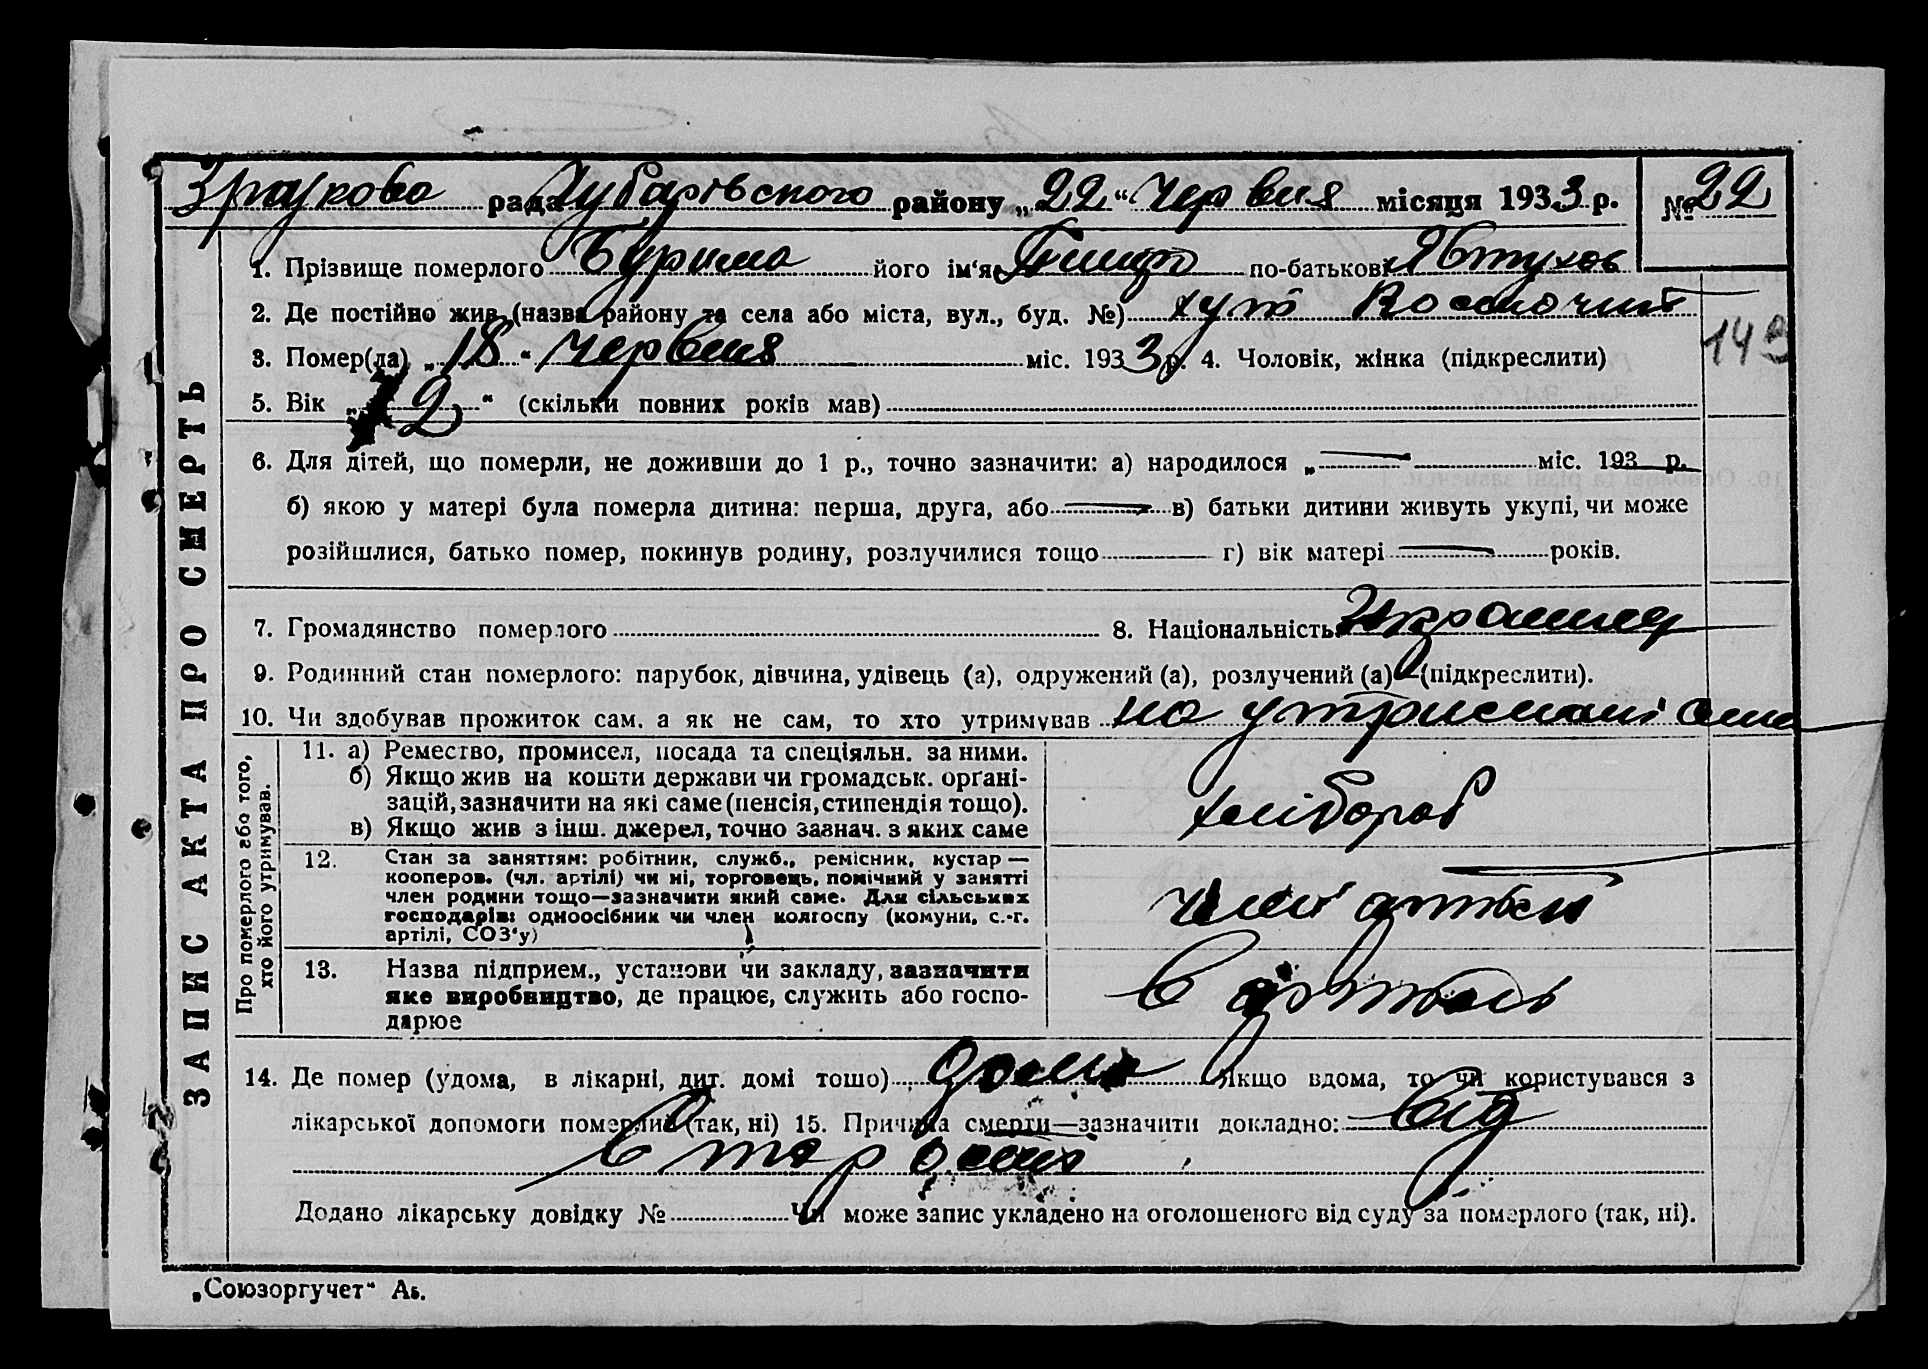 рада Чубарівського району „22“ Червня місяця 1933 р. № 22
1. Прізвище померлого Бурима його ім‘я по-батькові Явтухов
2. Де постійно жив (назва району та села або міста, вул., буд. №) хут
3. Помер(ла) „18“ Червня міс. 1933 р. 4. Чоловік, жінка (підкреслити)
143
5. Вік „ 2 “ (скільки повних років мав)
6. Для дітей, що померли, не доживши до 1 р., точно зазначити: а) народилося „—“ міс. 193 р.
б) якою у матері була померла дитина: перша, друга, або — в) батьки дитини живуть укупі, чи може
розійшлися, батько помер, покинув родину, розлучилися тощо — г) вік матері — років.
7. Громадянство померлого 8. Національність
9. Родинний стан померлого: парубок, дівчина, удівець (а), одружений (а), розлучений (а) (підкреслити).
10. Чи здобував прожиток сам, а як не сам, то хто утримував на утриманні сина
ЗАПИС АКТА ПРО СМЕРТЬ
Про померлого або того,
хто його утримував.
11. а) Ремество, промисел, посада та спеціяльн. за ними.
б) Якщо жив на кошти держави чи громадськ. орґані-
зацій, зазначити на які саме (пенсія, стипендія тощо).
в) Якщо жив з інш. джерел, точно зазнач. з яких саме
хлібороб
12. Стан за заняттям: робітник, служб., ремісник, кустар —
кооперов. (чл. артілі) чи ні, торговець, помічний у занятті
член родини тощо—зазначити який саме. Для сільських
господарів: одноосібник чи член колгоспу (комуни, с.-г.
артілі, СОЗ‘у)
член артели
13. Назва підприєм., установи чи закладу, зазначити
яке виробництво, де працює, служить або госпо-
дарює
в артель
14. Де помер (удома, в лікарні, дит. домі тощо) дома Якщо вдома, то чи користувався з
лікарської допомоги померлий (так, ні) 15. Причина смерти—зазначити докладно: від
старости
Додано лікарську довідку № Чи може запис укладено на оголошеного від суду за померлого (так, ні).
„Союзоргучет“ Аб.